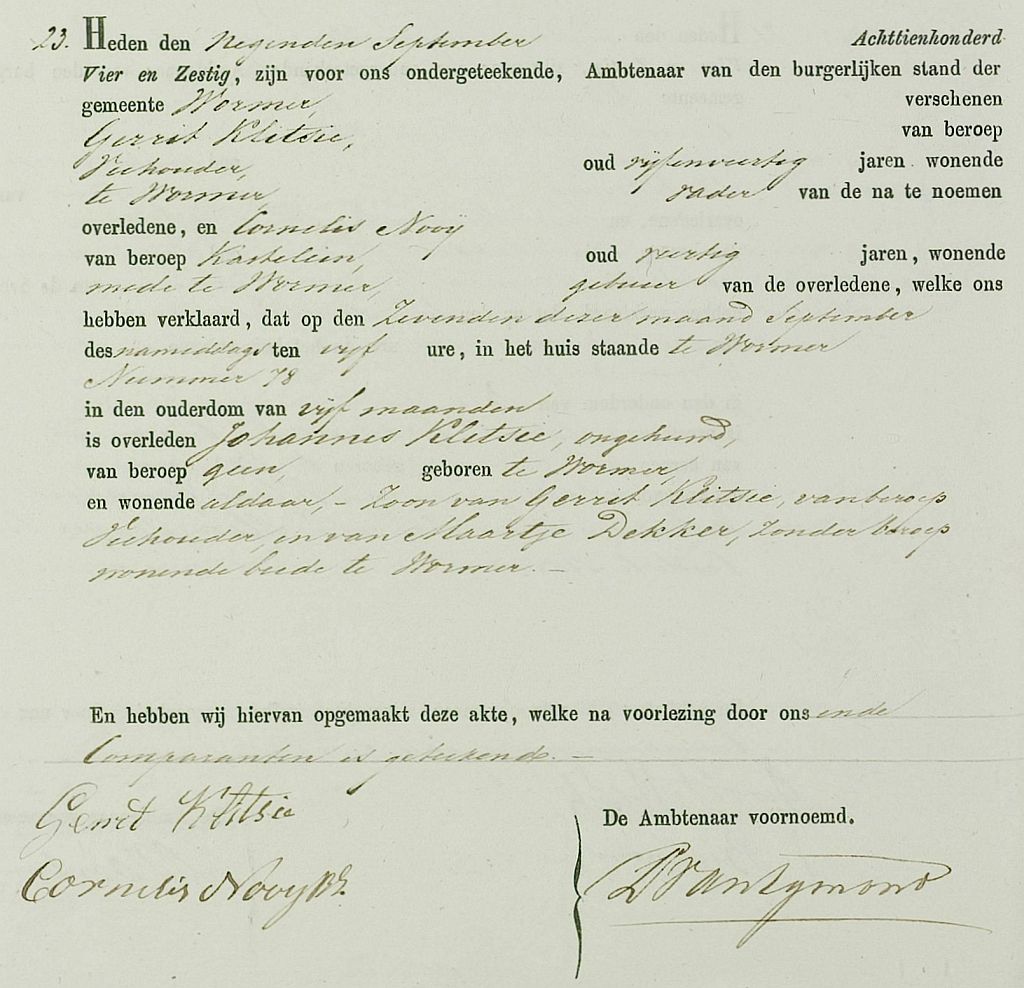 23. Heden den Negenden September Achttienhonderd
Vier en Zestig, zijn voor ons ondergeteekende, Ambtenaar van den burgerlijken stand der
gemeente Wormer, verschenen
Gerrit Klitsie, van beroep
Veehouder, oud vijfenveertig jaren wonende
te Wormer vader van de na te noemen
overledene, en Cornelis Nooij
van beroep Kastelein, oud veertig jaren, wonende
mede te Wormer, gebuur van de overledene, welke ons
hebben verklaard, dat op den Zevenden dezer maand September
des namiddags ten vijf ure, in het huis staande te Wormer
Nummer 78
in den ouderdom van vijf maanden
is overleden Johannes Klitsie, ongehuwd,
van beroep geen, geboren te Wormer,
en wonende aldaar, - Zoon van Gerrit Klitsie, van beroep
Veehouder, en van Maartje Dekker, zonder beroep
wonende beide te Wormer. -
En hebben wij hiervan opgemaakt deze akte, welke na voorlezing door ons en de
Comparanten is geteekend. -
Gerrit Klitsie
De Ambtenaar voornoemd.
Cornelis Nooij